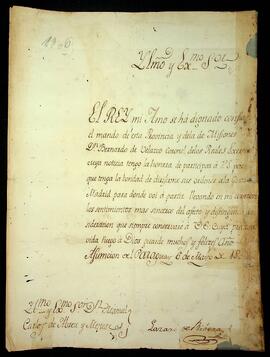 Yllmo y Exmo Sor
EL REY mi Amo se ha dignado conferir
el mando de esta Provincia y de la de Misiones
Dn Bernardo de Velazco Coronel de los Reales Exercitos
cuya noticia tengo la honrra de participar a V.E. para
que tenga la bondad de dirigirme sus ordenes a la
Madrid para donde voi á partir llevando en mi
los sentimientos mas sinceros del afecto y
que siempre conservaré á V.E. Cuya
vida ruego á Dios guarde muchos y felices años
Asuncion de Paraguay 6 de Mayo de 18
Yllmo y Exmo Sor Dn Manuel
Lazaro de Ribera